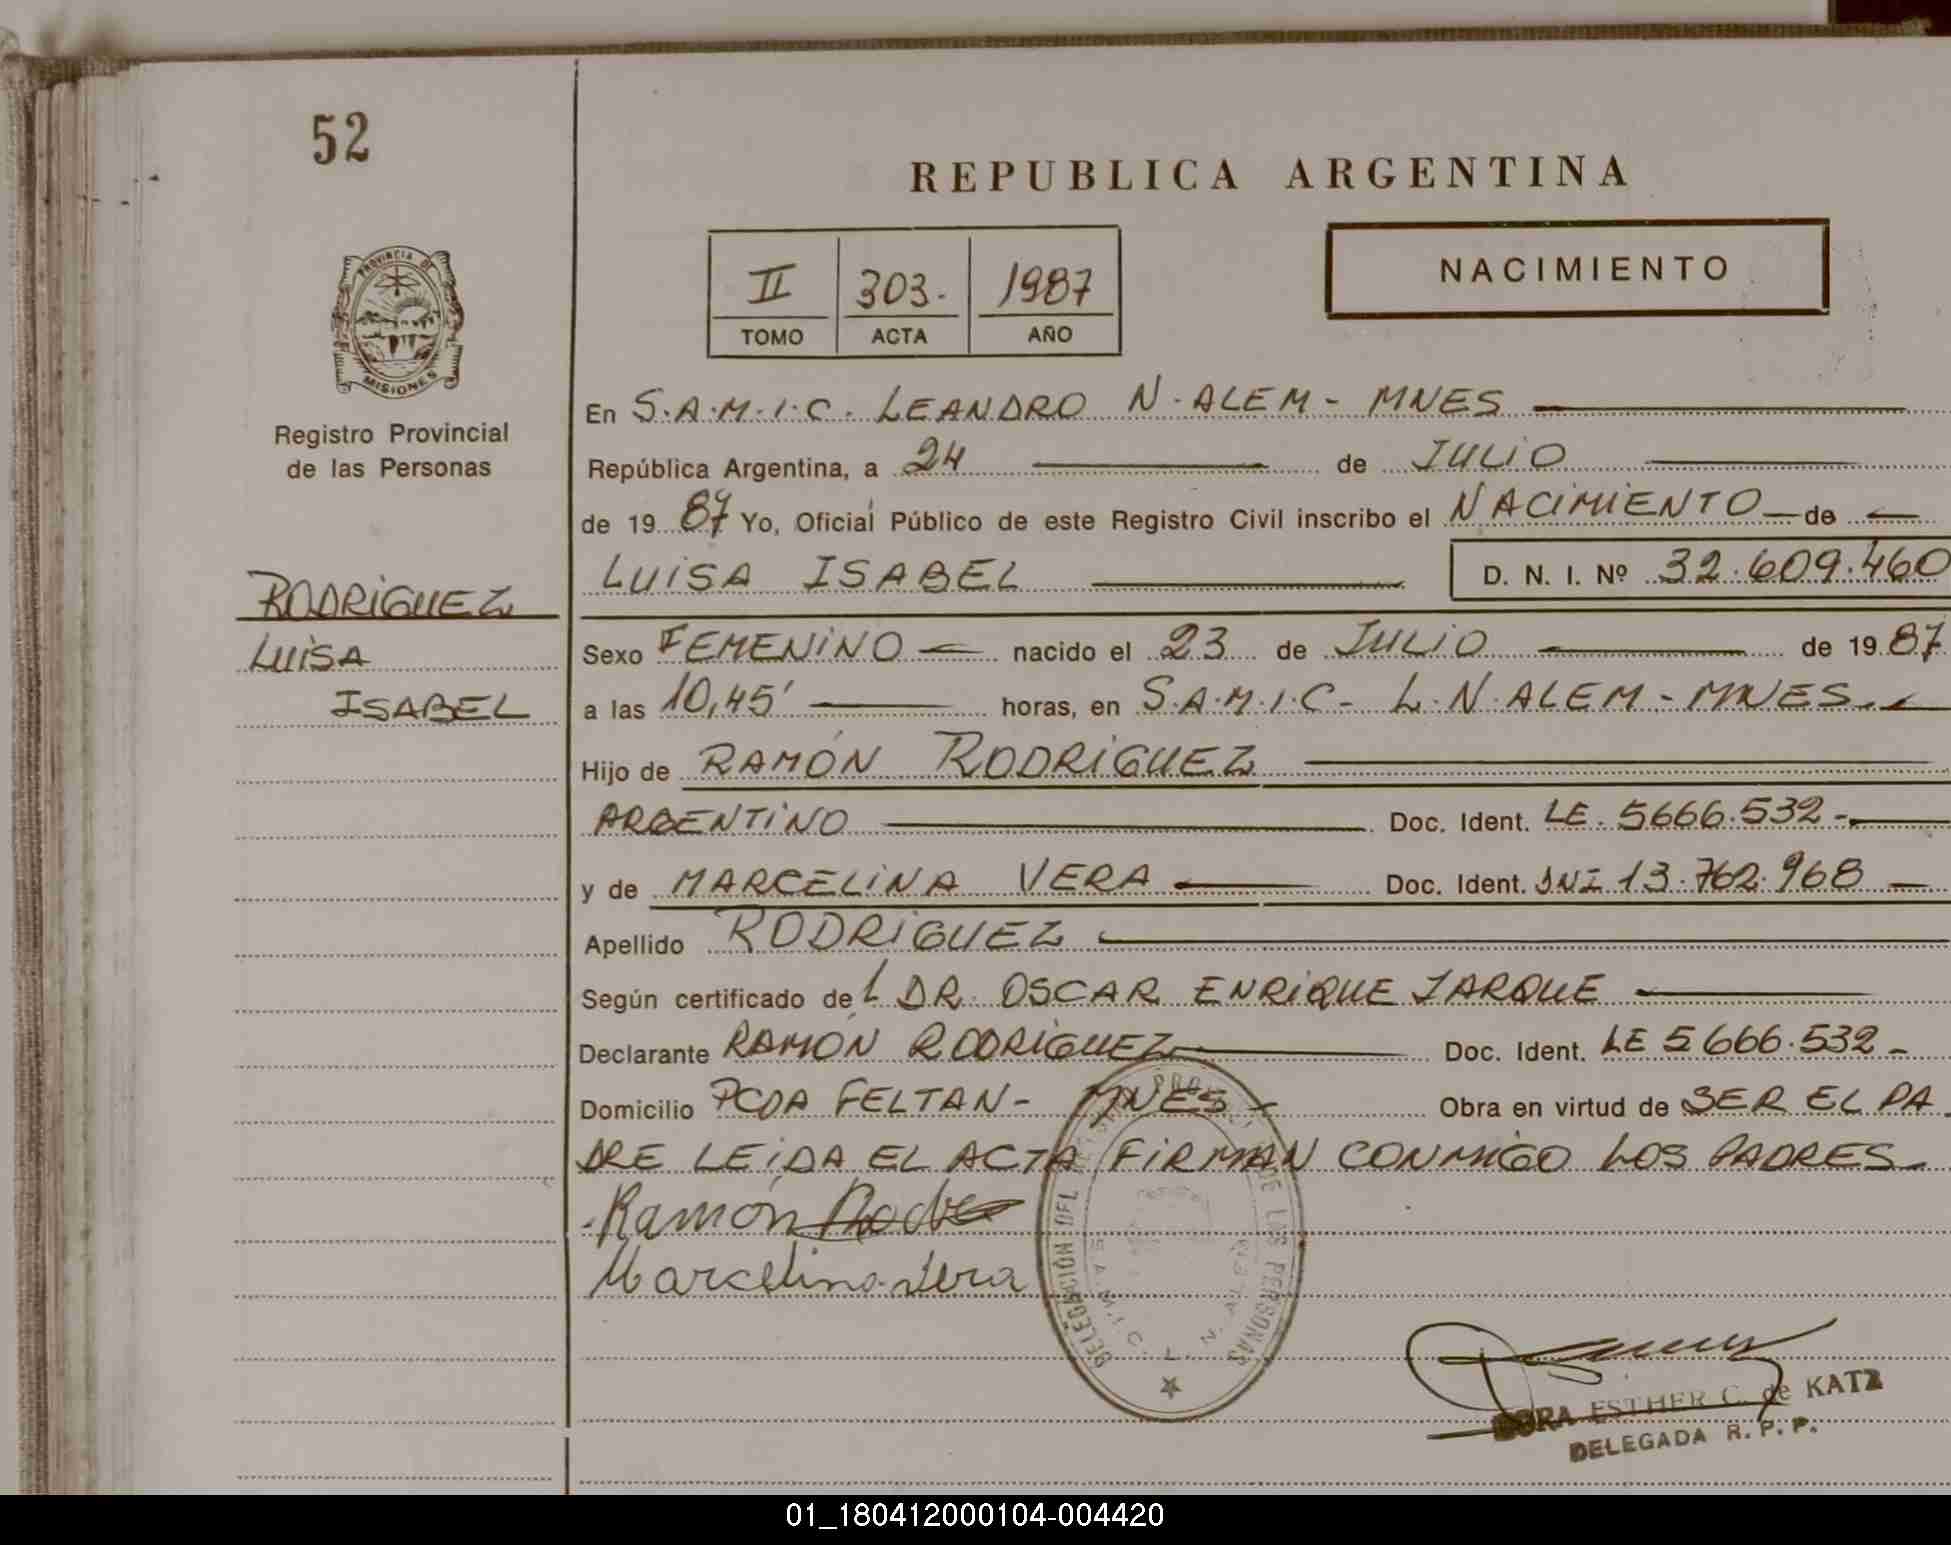 52
REPUBLICA ARGENTINA
PROVINCIA DE
MISIONES
Registro Provincial
de las Personas
II 303. 1987
TOMO ACTA AÑO
NACIMIENTO
En S.A.M.I.C. LEANDRO N. ALEM - MNES
República Argentina, a 24 de JULIO
de 19 87 Yo, Oficial Público de este Registro Civil inscribo el NACIMIENTO de
LUISA ISABEL D. N. I. Nº 32.609.460
RODRIGUEZ
LUISA
ISABEL
Sexo FEMENINO nacido el 23 de JULIO de 19 87
a las 10,45' horas, en S.A.M.I.C - L.N. ALEM - MNES.
Hijo de RAMÓN RODRIGUEZ
ARGENTINO Doc. Ident. LE. 5666.532-
y de MARCELINA VERA Doc. Ident. DNI 13.762.968
Apellido RODRIGUEZ
Según certificado del DR. OSCAR ENRIQUE JARQUE
Declarante RAMÓN RODRIGUEZ Doc. Ident. LE 5666.532-
Domicilio PCDA FELTAN - MNES - Obra en virtud de SER EL PA
DRE LEIDA EL ACTA FIRMAN CONMIGO LOS PADRES.
Ramón
Marcelina Vera
DELEGACIÓN DEL DE LAS PERSONAS
S.A.M.I.C. L. N. ALEM
DORA ESTHER C. de KATZ
DELEGADA R. P. P.
01_180412000104-004420